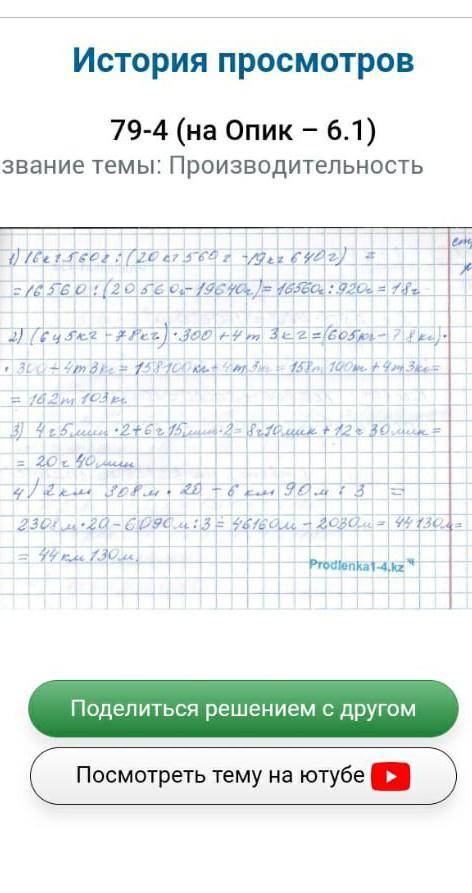 История просмотров
79-4 (на Опик – 6.1)
звание темы: Производительность
1) 16кг560г : (20кг560г -19кг640г) =
= 16560 : (20560г-19640г) = 16560г : 920г = 18г
2) (6ц5кг - 78кг) · 300 + 4т 3кг = (605кг - 78кг) ·
· 300 + 4т3кг = 158100кг + 4т3т = 158т100кг + 4т3кг=
= 162т 103кг
3) 4ч5мин · 2 + 6ч15мин · 2 = 8ч10мин + 12ч30мин =
= 20ч40мин
4) 2км 308м · 20 - 6км 90м : 3 =
2308м · 20 - 6090м : 3 = 46160м - 2030м = 44130м=
= 44км130м.
Prodlenka1-4.kz
Поделиться решением с другом
Посмотреть тему на ютубе